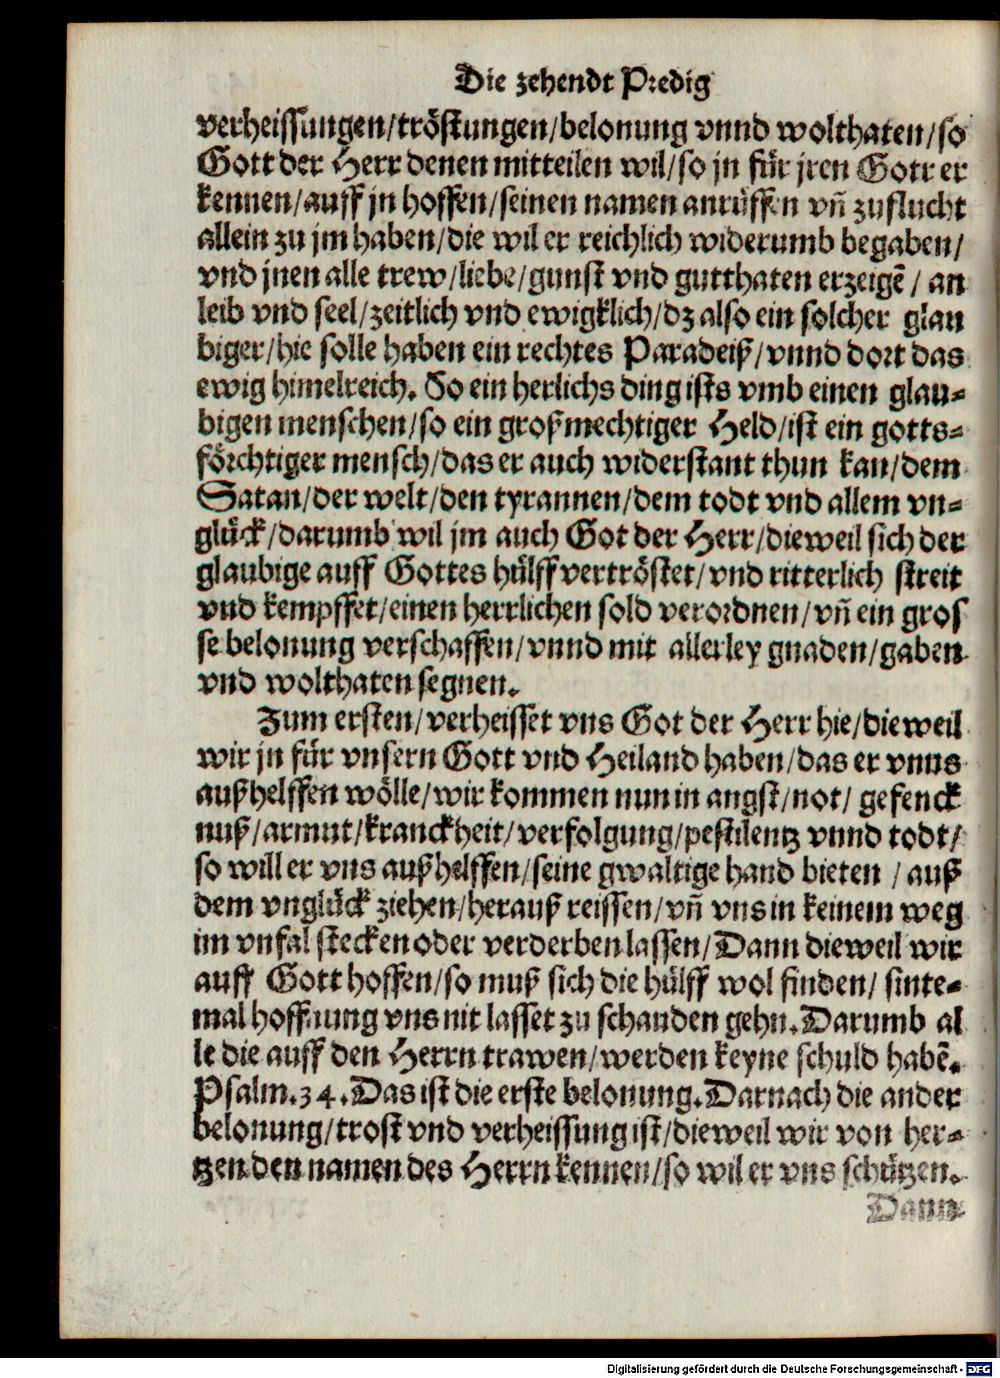 Die zehendt Predig
verheissungen/tröstungen/belonung vnnd wolthaten/so
Gott der Herr denen mitteilen wil/so jn für jren Gott er
kennen/auff jn hoffen/seinen namen anrüffen vñ zuflucht
allein zu jm haben/die wil er reichlich widerumb begaben/
vnd jnen alle trew/liebe/gunst vnd gutthaten erzeigẽ/ an
leib vnd seel/zeitlich vnd ewigklich/dz also ein solcher glau
biger/hie solle haben ein rechtes Paradeiß/vnnd dort das
ewig himelreich. So ein herlichs ding ists vmb einen glau-
bigen menschen/so ein großmechtiger Held/ist ein gotts-
förchtiger mensch/das er auch widerstant thun kan/dem
Satan/der welt/den tyrannen/dem todt vnd allem vn-
glück/darumb wil jm auch Got der Herr/dieweil sich der
glaubige auff Gottes hülff vertröstet/vnd ritterlich streit
vnd kempffet/einen herrlichen sold verordnen/vñ ein gros
se belonung verschaffen/vnnd mit allerley gnaden/gaben
vnd wolthaten segnen.
Zum ersten/verheisset vns Got der Herr hie/dieweil
wir jn für vnsern Gott vnd Heiland haben/das er vnns
außhelffen wölle/wir kommen nun in angst/not/ gefenck
nuß/armut/kranckheit/verfolgung/pestilentz vnnd todt/
so will er vns außhelffen/seine gwaltige hand bieten / auß
dem vnglück ziehen/herauß reissen/vñ vns in keinem weg
im vnfal stecken oder verderben lassen/Dann dieweil wir
auff Gott hoffen/so muß sich die hülff wol finden/ sinte-
mal hoffnung vns nit lasset zu schanden gehn. Darumb al
le die auff den Herrn trawen/werden keyne schuld habẽ.
Psalm.34. Das ist die erste belonung. Darnach die ander
belonung/trost vnd verheissung ist/dieweil wir von her-
tzen den namen des Herrn kennen/so wil er vns schützen.
Dann
Digitalisierung gefördert durch die Deutsche Forschungsgemeinschaft - DFG